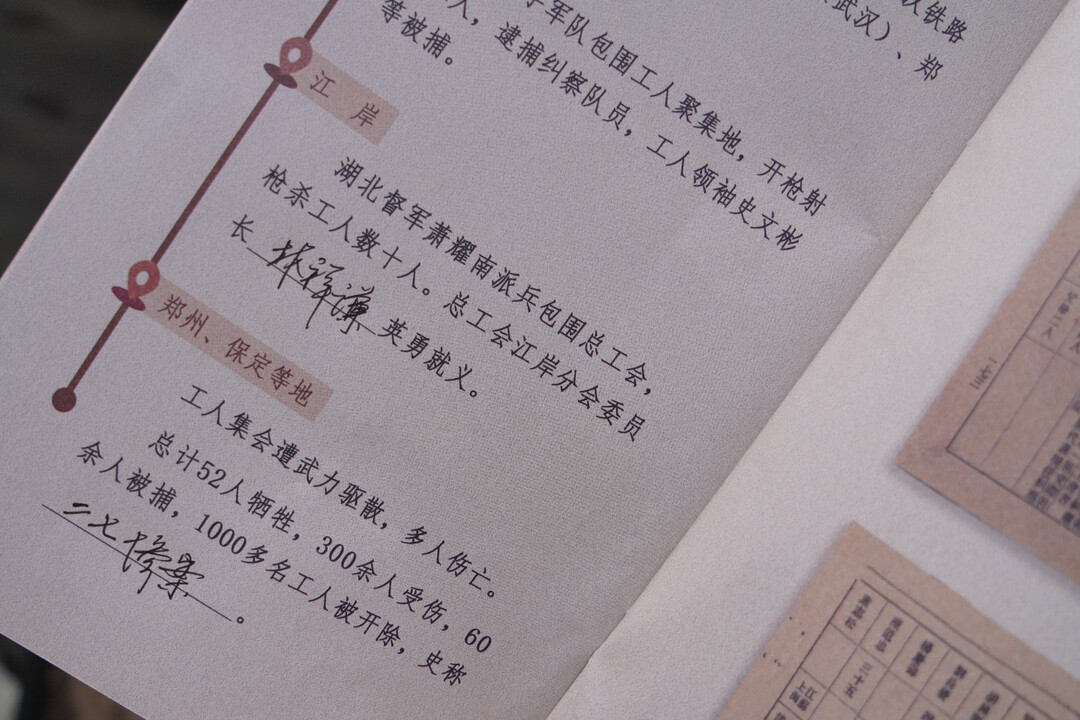 铁路
武汉）、郑
军队包围工人聚集地，开枪射
人，逮捕纠察队员，工人领袖史文彬
等被捕。
江岸
湖北督军萧耀南派兵包围总工会，
枪杀工人数十人。总工会江岸分会委员
长林祥谦英勇就义。
郑州、保定等地
工人集会遭武力驱散，多人伤亡。
总计52人牺牲，300余人受伤，60
余人被捕，1000多名工人被开除，史称
二七惨案。
一七三
三十五